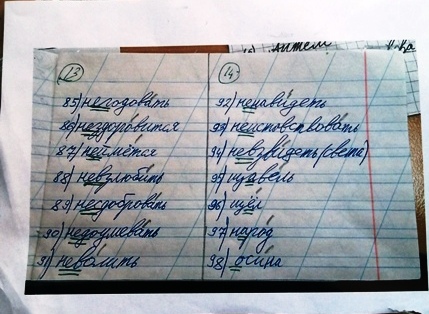 13
85) негодовать
86) нездоровится
87) неймётся
88) невзлюбить
89) несдобровать
90) недоумевать
91) неволить
14
92) ненавидеть
93) неистовствовать
94) невзвидеть (света)
95) щавель
96) щёл
97) народ
98) осина